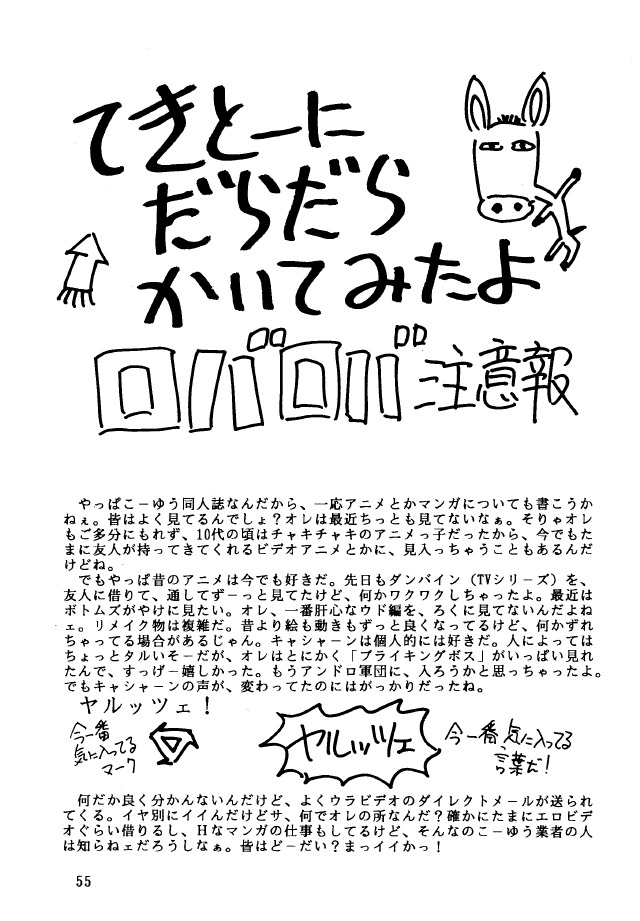 てきとーに
だらだら
かいてみたよ
ロバロバ注意報
　やっぱこーゆう同人誌なんだから、一応アニメとかマンガについても書こうか
ねぇ。皆はよく見てるんでしょ？オレは最近ちっとも見てないなぁ。そりゃオレ
もご多分にもれず、10代の頃はチャキチャキのアニメっ子だったから、今でもた
まに友人が持ってきてくれるビデオアニメとかに、見入っちゃうこともあるんだ
けどね。
　でもやっぱ昔のアニメは今でも好きだ。先日もダンバイン（TVシリーズ）を、
友人に借りて、通してずーっと見てたけど、何かワクワクしちゃったよ。最近は
ボトムズがやけに見たい。オレ、一番肝心なウド編を、ろくに見てないんだよね
ェ。リメイク物は複雑だ。昔より絵も動きもずっと良くなってるけど、何かずれ
ちゃってる場合があるじゃん。キャシャーンは個人的には好きだ。人によっては
ちょっとタルいそーだが、オレはとにかく「ブライキングボス」がいっぱい見れ
たんで、すっげー嬉しかった。もうアンドロ軍団に、入ろうかと思っちゃったよ。
でもキャシャーンの声が、変わってたのにはがっかりだったね。
ヤルッツェ！
今一番
気に入ってる
マーク
ヤルッツェ
今一番、気に入ってる
言葉だ！
　何だか良く分かんないんだけど、よくウラビデオのダイレクトメールが送られ
てくる。イヤ別にイイんだけどサ、何でオレの所なんだ？確かにたまにエロビデ
オぐらい借りるし、Ｈなマンガの仕事もしてるけど、そんなのこーゆう業者の人
は知らねェだろうしなぁ。皆はどーだい？まっイイかっ！
55